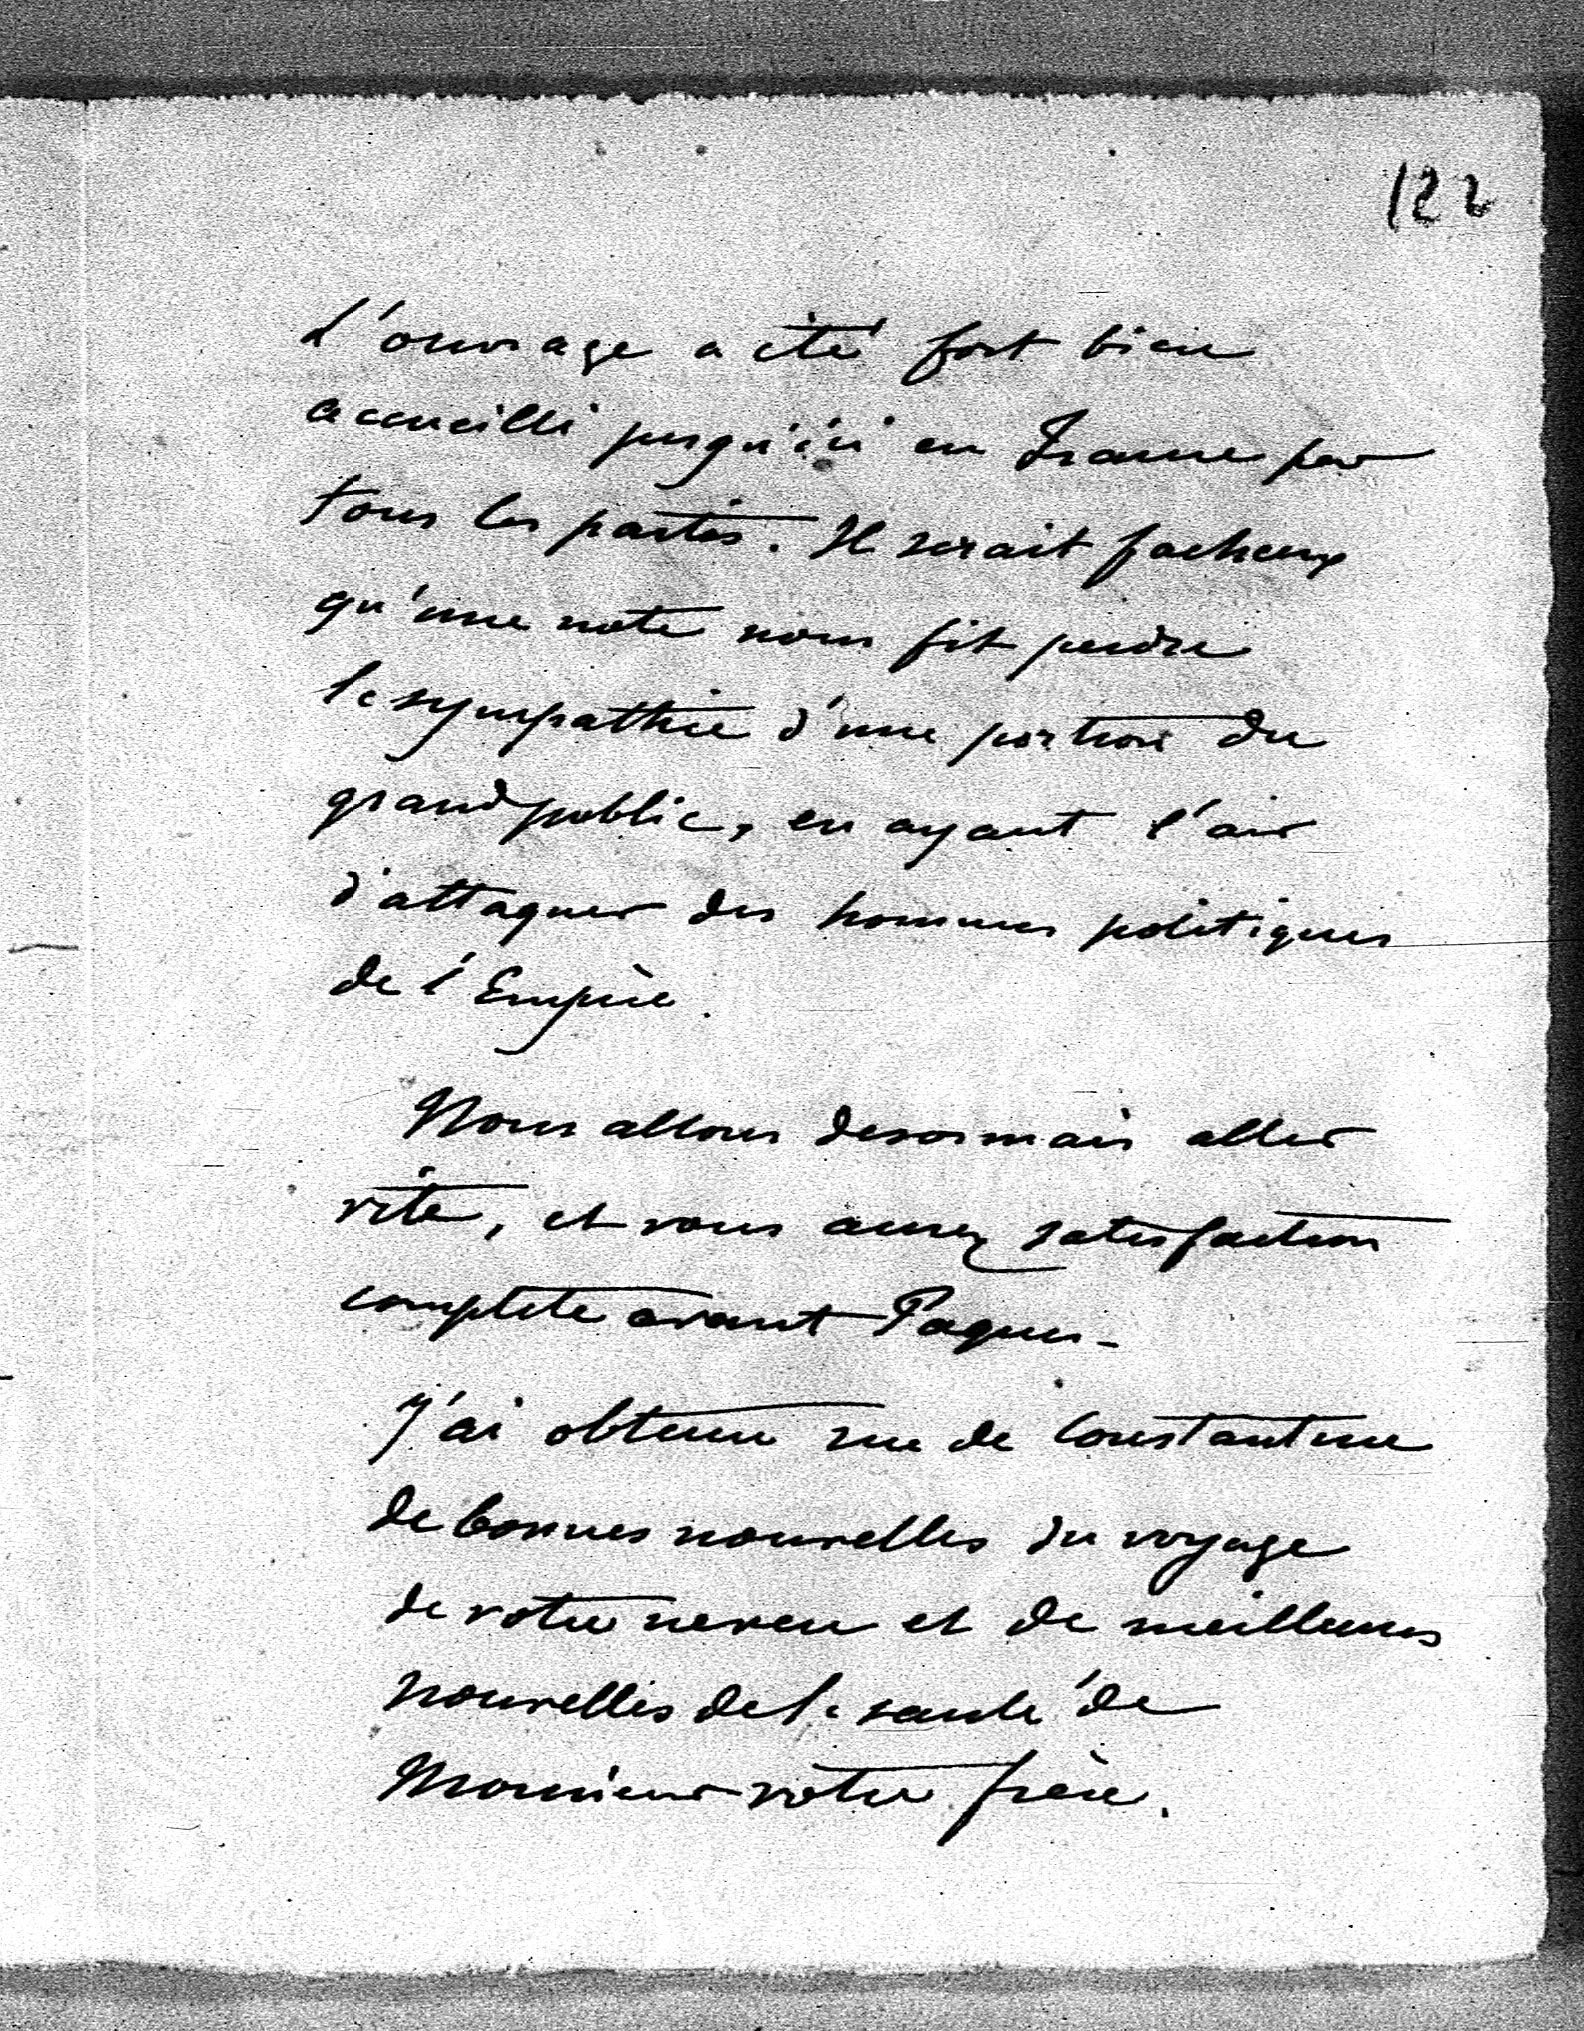 122
L'ouvrage a été fort bien
accueilli jusqu'ici en France par
tous les partis. Il serait facheux
qu'une note nous fit perdre
la sympathie d'une portion du
grand public, en ayant l'air
d'attaquer des hommes politiques
de l'Empire.
Nous allons desormais aller
vite, et vous aurez satisfaction
complete avant Paques -
J'ai obtenu rue de Constantine
de bonnes nouvelles du voyage
de votre neveu et de meilleures
nouvelles de la santé de
Monsieur votre frère.